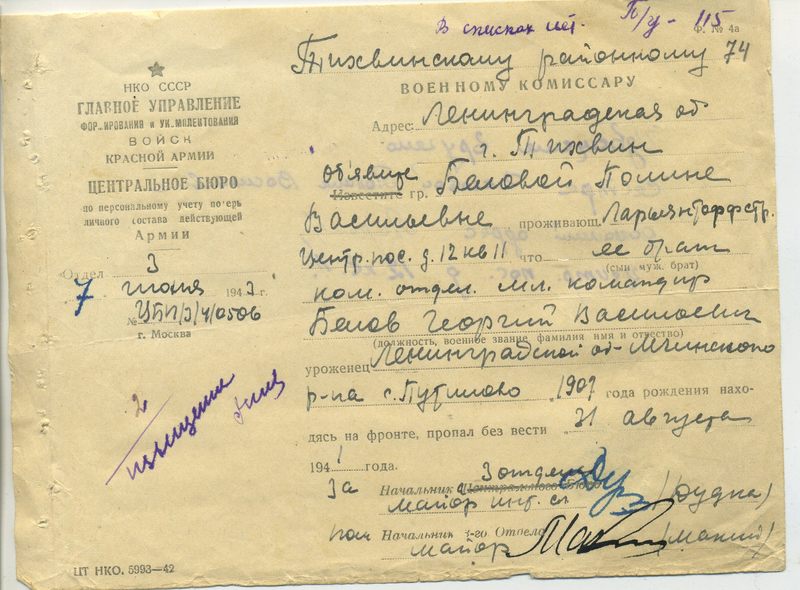 В списках нет. П/у - 115
Ф. № 4а
74
НКО СССР
ГЛАВНОЕ УПРАВЛЕНИЕ
ФОРМИРОВАНИЯ И УКОМПЛЕКТОВАНИЯ
ВОЙСК
КРАСНОЙ АРМИИ
ЦЕНТРАЛЬНОЕ БЮРО
по персональному учету потерь
личного состава действующей
Армии
Отдел 3
7 июня 1943 г.
№ ЦБП/3/4/0506
г. Москва
2
Тихвинскому районному
ВОЕННОМУ КОМИССАРУ
Адрес: Ленинградская об
г. Тихвин
объявите
Известите гр. Беловой Полине
Васильевне проживающ.
Центр. пос. д. 12 кв 11 что ее брат
(сын, муж, брат)
ком. отдел. мл. командир
Белов Георгий Васильевич
(должность, военное звание, фамилия имя и отчество)
уроженец Ленинградской об- Мгинского
р-на с. Путилово 1907 года рождения нахо-
дясь на фронте, пропал без вести 31 августа
1941 года.
За Начальник 3 отдела Центрального бюро
майор инт. сл. (Дудка)
пом Начальник 3-го Отдела
майор
ЦТ НКО. 5993—42